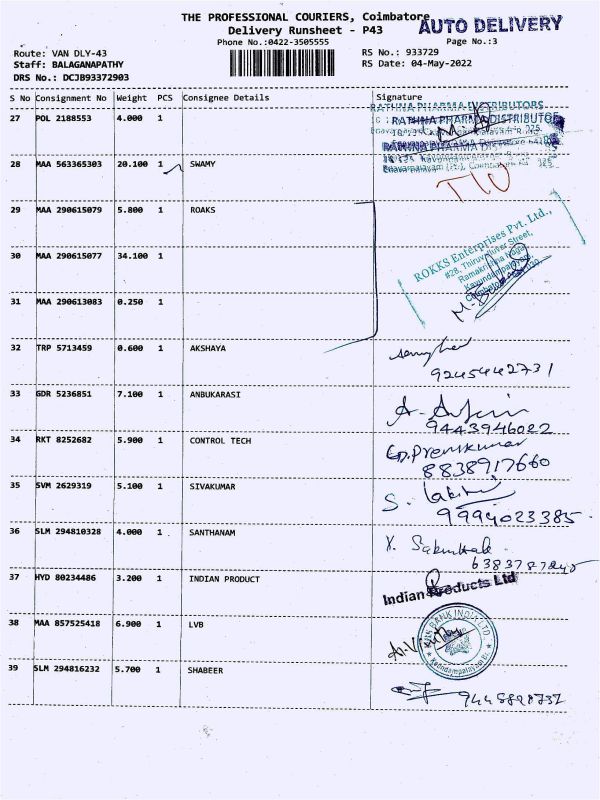 THE PROFESSIONAL COURIERS, Coimbatore
AUTO DELIVERY
Delivery Runsheet - P43
Phone No.:0422-3505555
Page No.:3
Route: VAN DLY-43
RS No.: 933729
Staff: BALAGANAPATHY
RS Date: 04-May-2022
DRS No.: DCJB93372903
S No Consignment No Weight PCS Consignee Details Signature
27 POL 2188553 4.000 1
RATHNA PHARMA DISTRIBUTORS
RATHNA PHARMA DISTRIBUTOR
RATHNA PHARMA DIST
28 MAA 563365303 20.100 1 SWAMY
TW
29 MAA 290615079 5.800 1 ROAKS
ROKKS Enterprises Pvt. Ltd.,
#28, Thiruvalluvar Street,
Ramakrishna Nagar,
Kavundampalayam,
30 MAA 290615077 34.100 1
31 MAA 290613083 0.250 1
32 TRP 5713459 0.600 1 AKSHAYA
9245442731
33 GDR 5236851 7.100 1 ANBUKARASI
9443946022
34 RKT 8252682 5.900 1 CONTROL TECH
G.Premkumar
8838917660
35 SVM 2629319 5.100 1 SIVAKUMAR
S.
9994023385
36 SLM 294810328 4.000 1 SANTHANAM
37 HYD 80234486 3.200 1 INDIAN PRODUCT
Indian Products Ltd
38 MAA 857525418 6.900 1 LVB
BANK INDIA LTD.
39 SLM 294816232 5.700 1 SHABEER